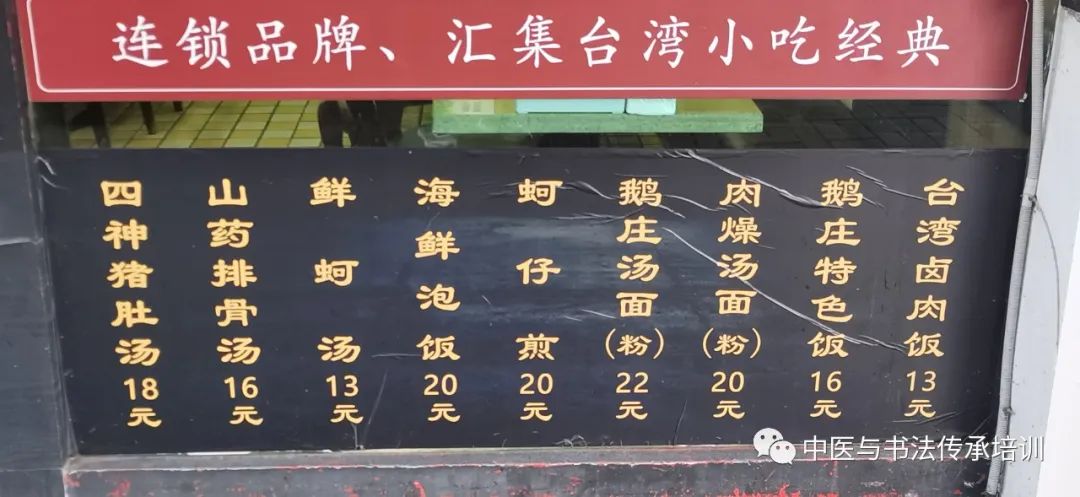 连锁品牌、汇集台湾小吃经典
四神猪肚汤18元
山药排骨汤16元
鲜蚵汤13元
海鲜泡饭20元
蚵仔煎20元
鹅庄汤面(粉)22元
肉燥汤面(粉)20元
鹅庄特色饭16元
台湾卤肉饭13元
中医与书法传承培训